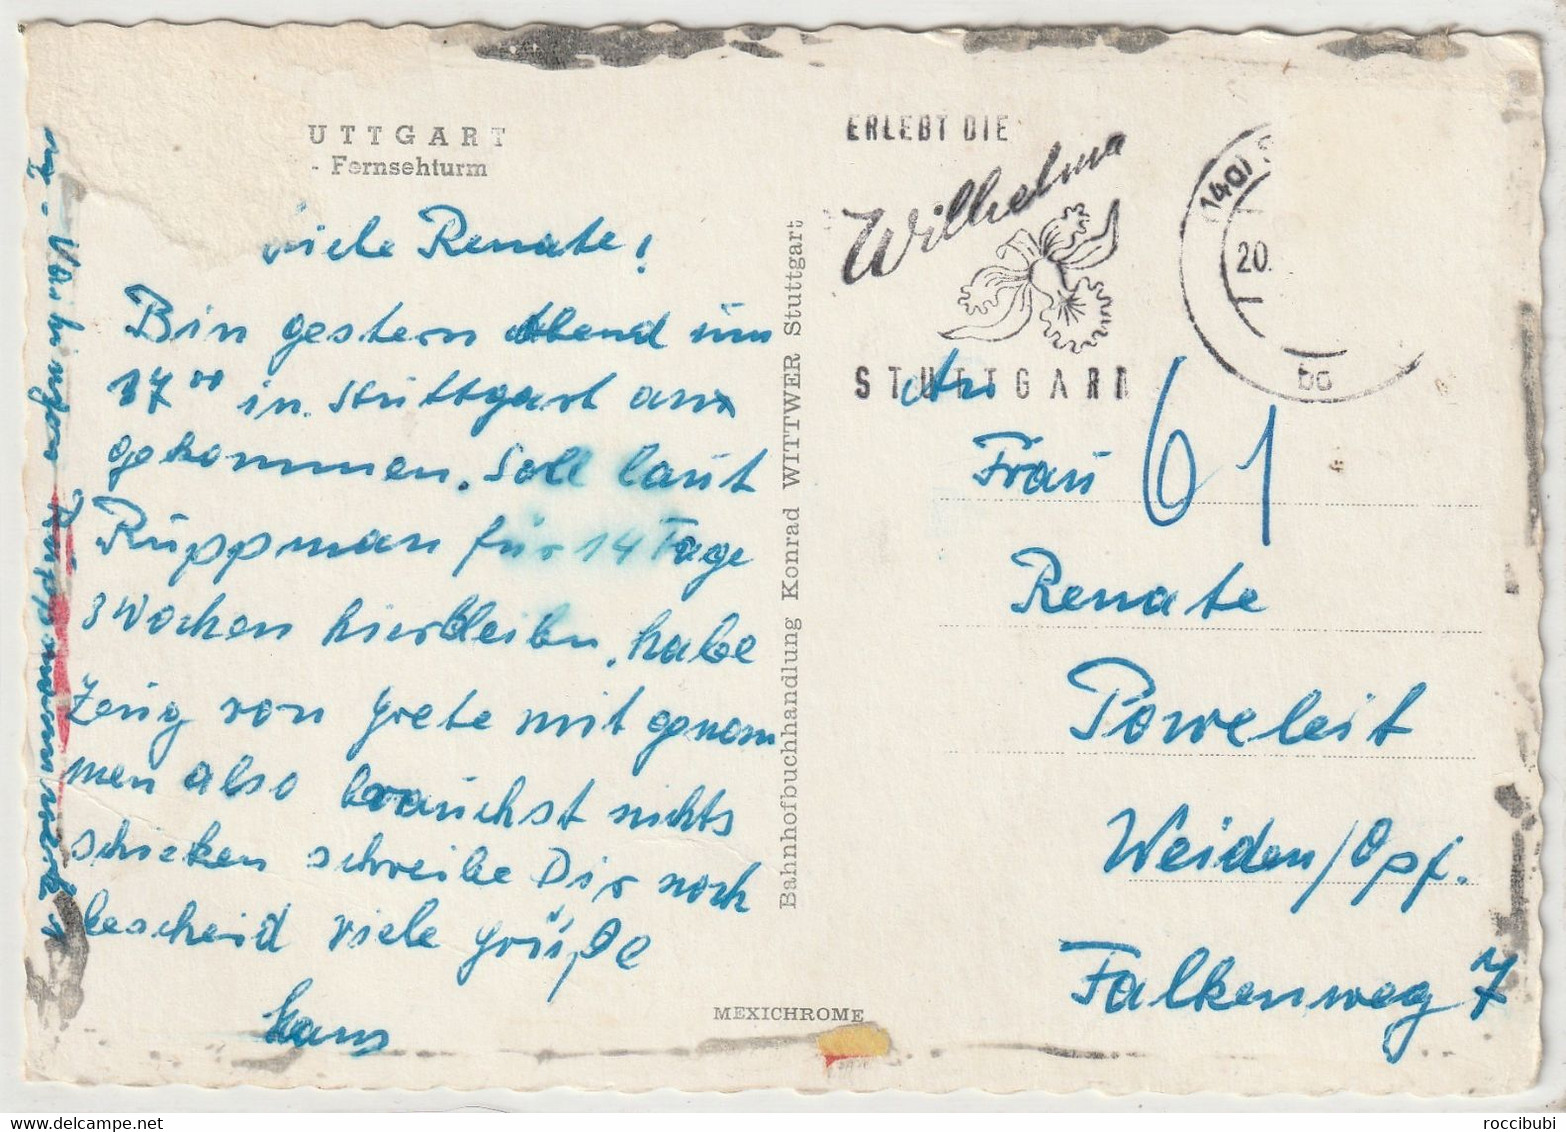 UTTGART
- Fernsehturm
Viele Renate!
Bin gestern Abend um
17°° in Stuttgart an
gekommen. Soll laut
Ruppman für 14 Tage
3 Wochen hierbleiben, habe
Zeug von Grete mit genom
men also brauchst nichts
schicken schreibe Dir noch
bescheid viele Grüße
Hans
Vaihingen Ruppmannstr. 1
Bahnhofbuchhandlung Konrad WITTWER Stuttgart
MEXICHROME
ERLEBT DIE
Wilhelma
STUTTGART
(14a) S
20.
bc
An
61
Frau
Renate
Poweleit
Weiden/Opf.
Falkenweg 7
roccibubi